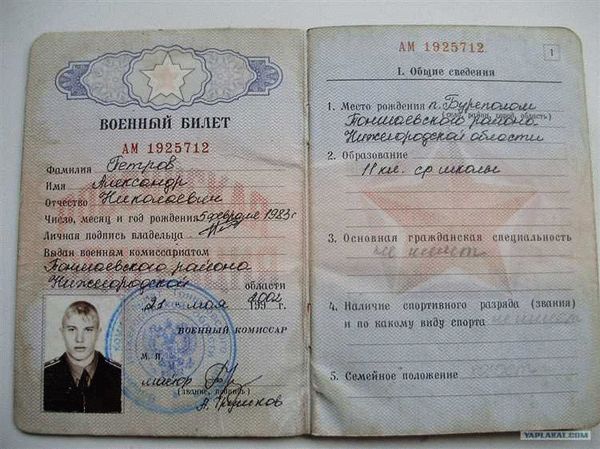 ВОЕННЫЙ БИЛЕТ
АМ 1925712
Фамилия Петров
Имя Александр
Отчество Николаевич
Число, месяц и год рождения 5 февраля 1983 г
Личная подпись владельца
Выдан военным комиссариатом
Тоншаевского района
Нижегородской области
"21" мая 2002 г.
ВОЕННЫЙ КОМИССАР
М. П.
майор
(звание, подпись)
АМ 1925712
1
I. Общие сведения
1. Место рождения п. Буреполом
Тоншаевского района
Нижегородской области
2. Образование
11 кл. ср школы
3. Основная гражданская специальность
не имеет
4. Наличие спортивного разряда (звания)
и по какому виду спорта не имеет
5. Семейное положение
YAPLAKAL.COM